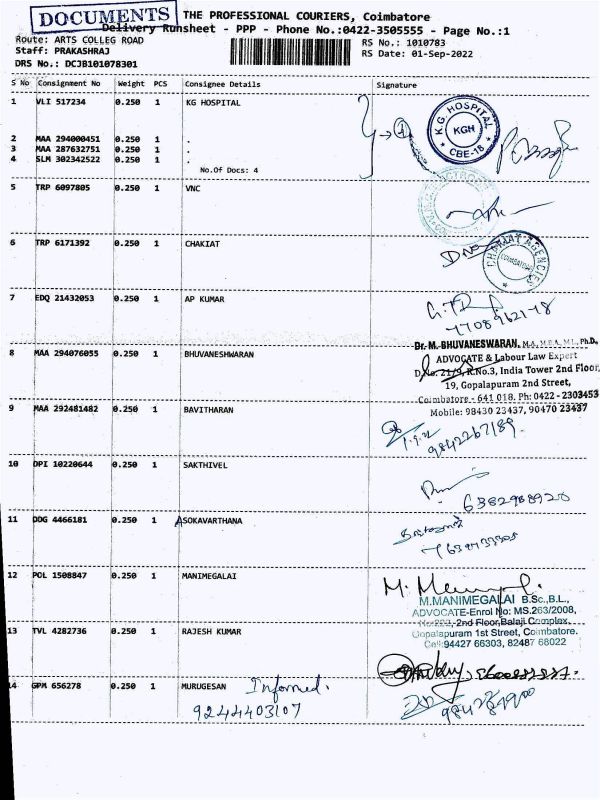 DOCUMENTS
THE PROFESSIONAL COURIERS, Coimbatore
Delivery Runsheet - PPP - Phone No.:0422-3505555 - Page No.:1
Route: ARTS COLLEG ROAD
RS No.: 1010783
Staff: PRAKASHRAJ
RS Date: 01-Sep-2022
DRS No.: DCJB101078301
S No Consignment No Weight PCS Consignee Details Signature
1 VLI 517234 0.250 1 KG HOSPITAL
K.G. HOSPITAL
KGH
* CBE-18 *
2 MAA 294000451 0.250 1 .
3 MAA 287632751 0.250 1 .
4 SLM 302342522 0.250 1 .
No.Of Docs: 4
5 TRP 6097805 0.250 1 VNC
6 TRP 6171392 0.250 1 CHAKIAT
CHAKIAT AGENCIES
7 EDQ 21432053 0.250 1 AP KUMAR
8 MAA 294076055 0.250 1 BHUVANESHWARAN
Dr. M. BHUVANESWARAN, M.A., M.B.A., M.L., Ph.D.,
ADVOCATE & Labour Law Expert
D.No. 21/9, R.No.3, India Tower 2nd Floor,
19, Gopalapuram 2nd Street,
Coimbatore - 641 018. Ph: 0422 - 2303453
Mobile: 98430 23437, 90470 23437
9 MAA 292481482 0.250 1 BAVITHARAN
1.9.22
9842267189.
10 DPI 10220644 0.250 1 SAKTHIVEL
6382988920
11 DOG 4466181 0.250 1 ASOKAVARTHANA
12 POL 1508847 0.250 1 MANIMEGALAI
M.MANIMEGALAI B.Sc.,B.L.,
ADVOCATE-Enrol No: MS.263/2008,
No:222, 2nd Floor,Balaji Complex,
Gopalapuram 1st Street, Coimbatore.
Cell:94427 66303, 82487 66022
13 TVL 4282736 0.250 1 RAJESH KUMAR
14 GPM 656278 0.250 1 MURUGESAN Informed.
9244403107